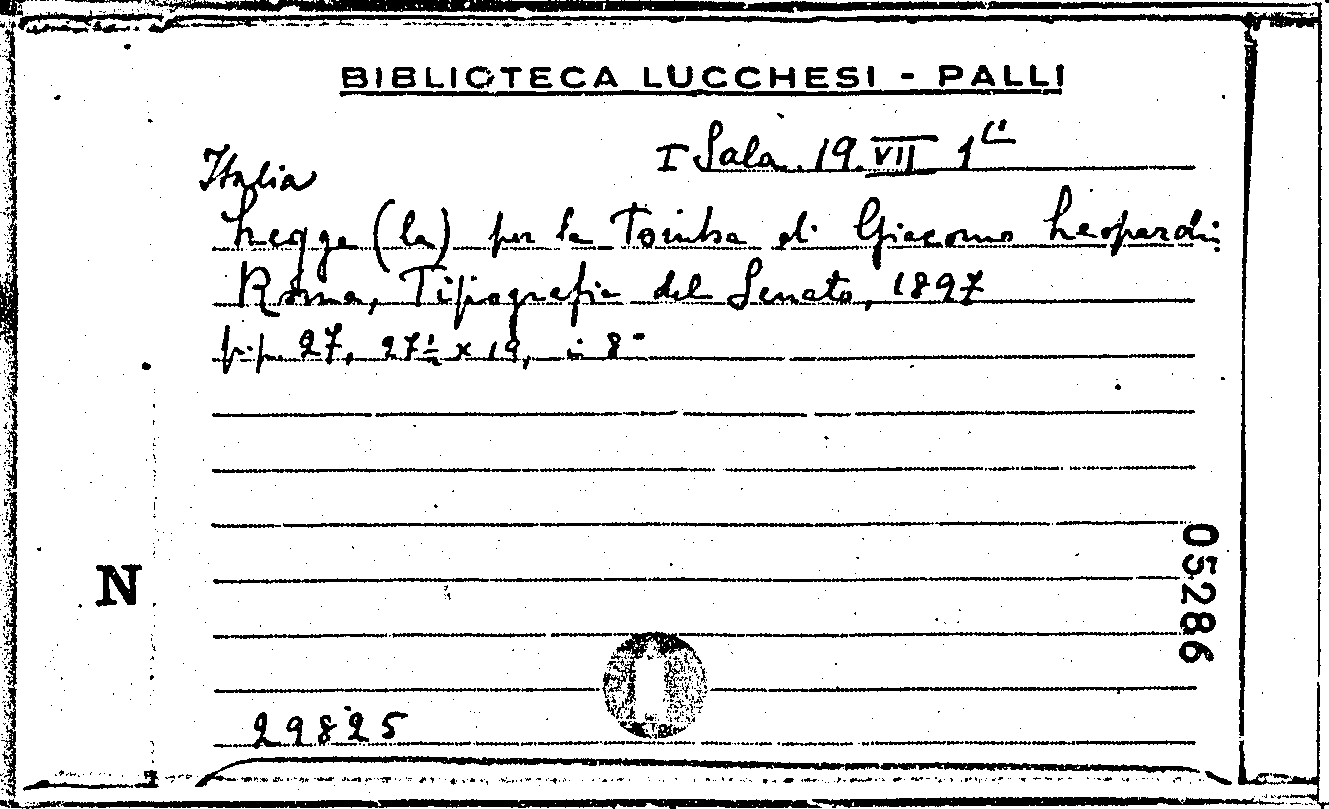 BIBLIOTECA LUCCHESI - PALLI
I Sala 19. VII 1
Italia
Legge (la) per la Tomba di Giacomo Leopardi.
Roma, Tipografia del Senato, 1897
p.p. 27, 27½ x 19, i 8°
N
05286
29825